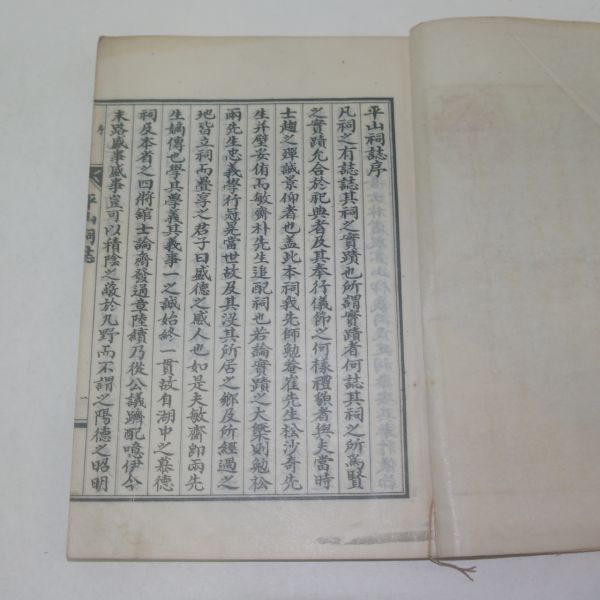 平山祠誌序
凡祠之有誌誌其祠之實蹟也所謂實蹟者何誌其祠之所爲賢
之實蹟允合於祀典者及其奉行儀節之何樣禮貌者與夫當時
士趨之殫誠景仰者也盖此本祠我先師勉菴崔先生松沙奇先
生并壁妥侑而敏齋朴先生追配祠也若論實蹟之大槩則勉松
兩先生忠義學行冠冕當世故及其沒其所居之鄉及所經過之
地皆立祠而疊享之君子曰盛德之感人也如是夫敏齋卽兩先
生嫡傳也學其學義其義事一之誠始終一貫故自湖中之慕德
祠及本省之四將舘士論齊發過章陸續乃從公議躋配噫伊今
末路盛事盛事豈可以積陰之敬於凡野而不謂之陽德之昭明
序
平山祠誌
一